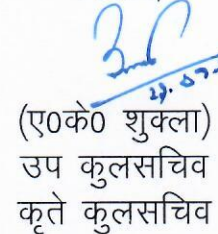 (ए0के0 शुक्ला)
उप कुलसचिव
कृते कुलसचिव